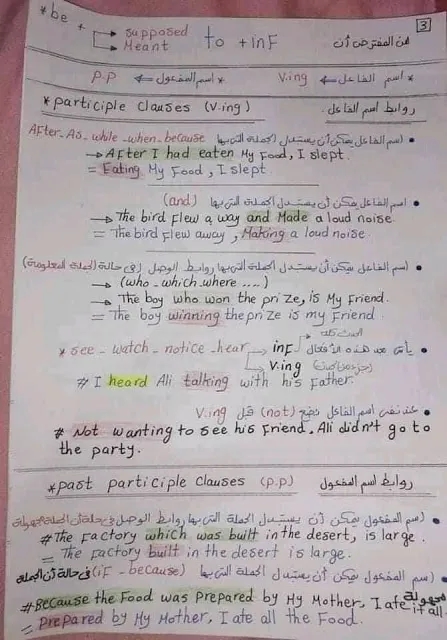 3
*be + supposed to + inf من المفترض أن
Meant
* اسم الفاعل ← V.ing * اسم المفعول ← p.p
*participle clauses (v.ing) روابط اسم الفاعل.
• اسم الفاعل يمكن أن يستبدل الجملة التي بها After - As - while - when - because
→ After I had eaten My food, I slept.
= Eating My food, I slept
• اسم الفاعل يمكن أن يستبدل الجملة التي بها (and)
→ The bird flew a way and Made a loud noise
= The bird flew away, Making a loud noise.
• اسم الفاعل يمكن أن يستبدل الجملة التي بها روابط الوصل في حالة (الجملة المعلومة)
→ (who - which - where ....)
→ The boy who won the prize, is My friend.
= The boy winning the prize is my friend.
* see - watch - notice - hear → inf الحدث كله
→ V.ing
• يأتي بعد هذه الأفعال
# I heard Ali talking with his Father
• عند نفي اسم الفاعل نضع (not) قبل V.ing
# Not wanting to see his friend, Ali didn't go to
the party.
*past participle clauses (p.p) روابط اسم المفعول
• (اسم المفعول يمكن أن يستبدل الجملة التي بها روابط الوصل في حالة أن الجملة مجهولة
# The factory which was built in the desert, is large.
= The factory built in the desert is large.
• (اسم المفعول يمكن أن يستبدل الجملة التي بها (if - because) في حالة أن الجملة
مجهولة
# Because the Food was prepared by My Mother, I ate it all
= prepared by My Mother, I ate all the Food.